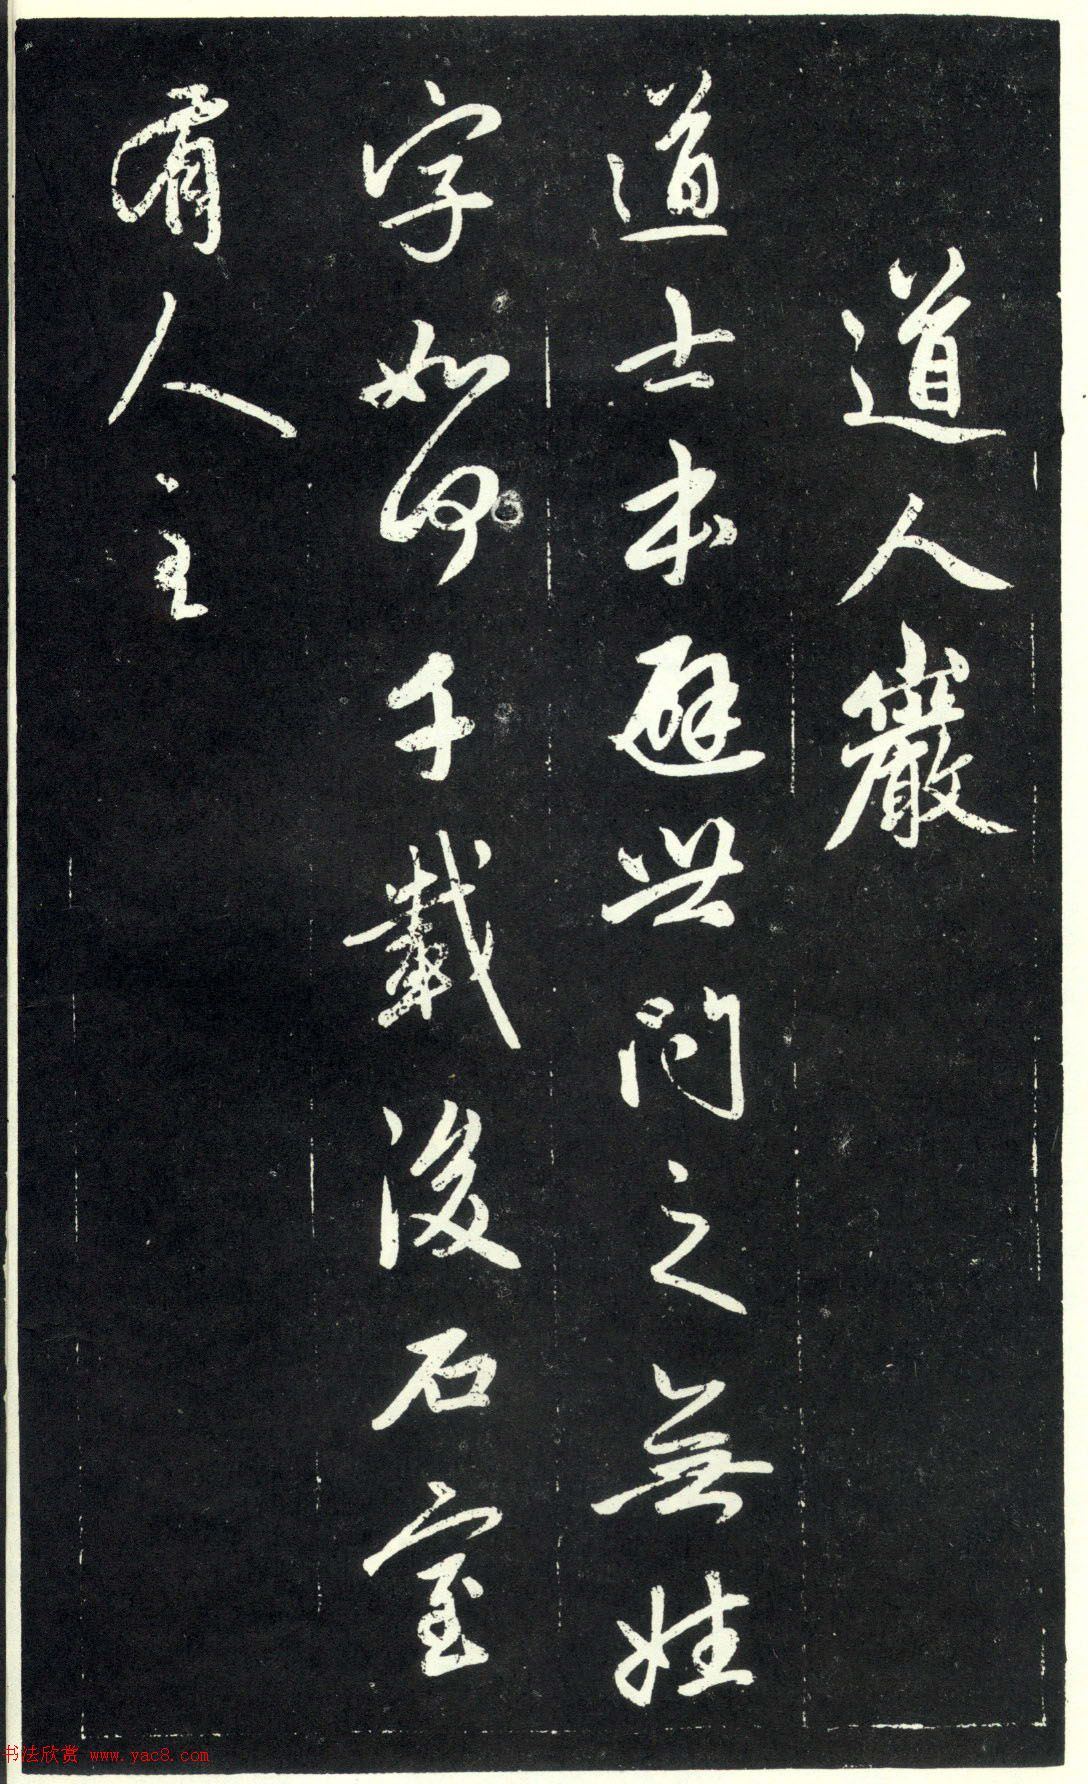 道人巖
道士本避世問之無姓
字如何千載後石室
有人主
书法欣赏 www.yac8.com